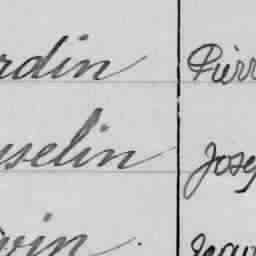 rdin Pierr
sselin Josep
vin